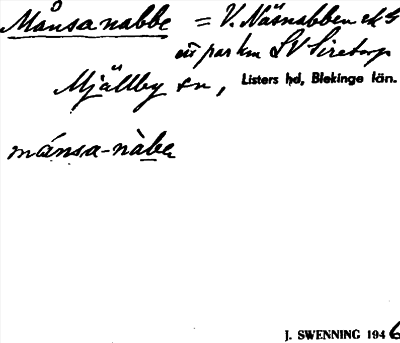 Månsanabbe = V. Näsnabben ek S
ett par km SV Siretorp
Mjällby sn, Listers hd, Blekinge län.
mánsa-nàbe
J. SWENNING 1946